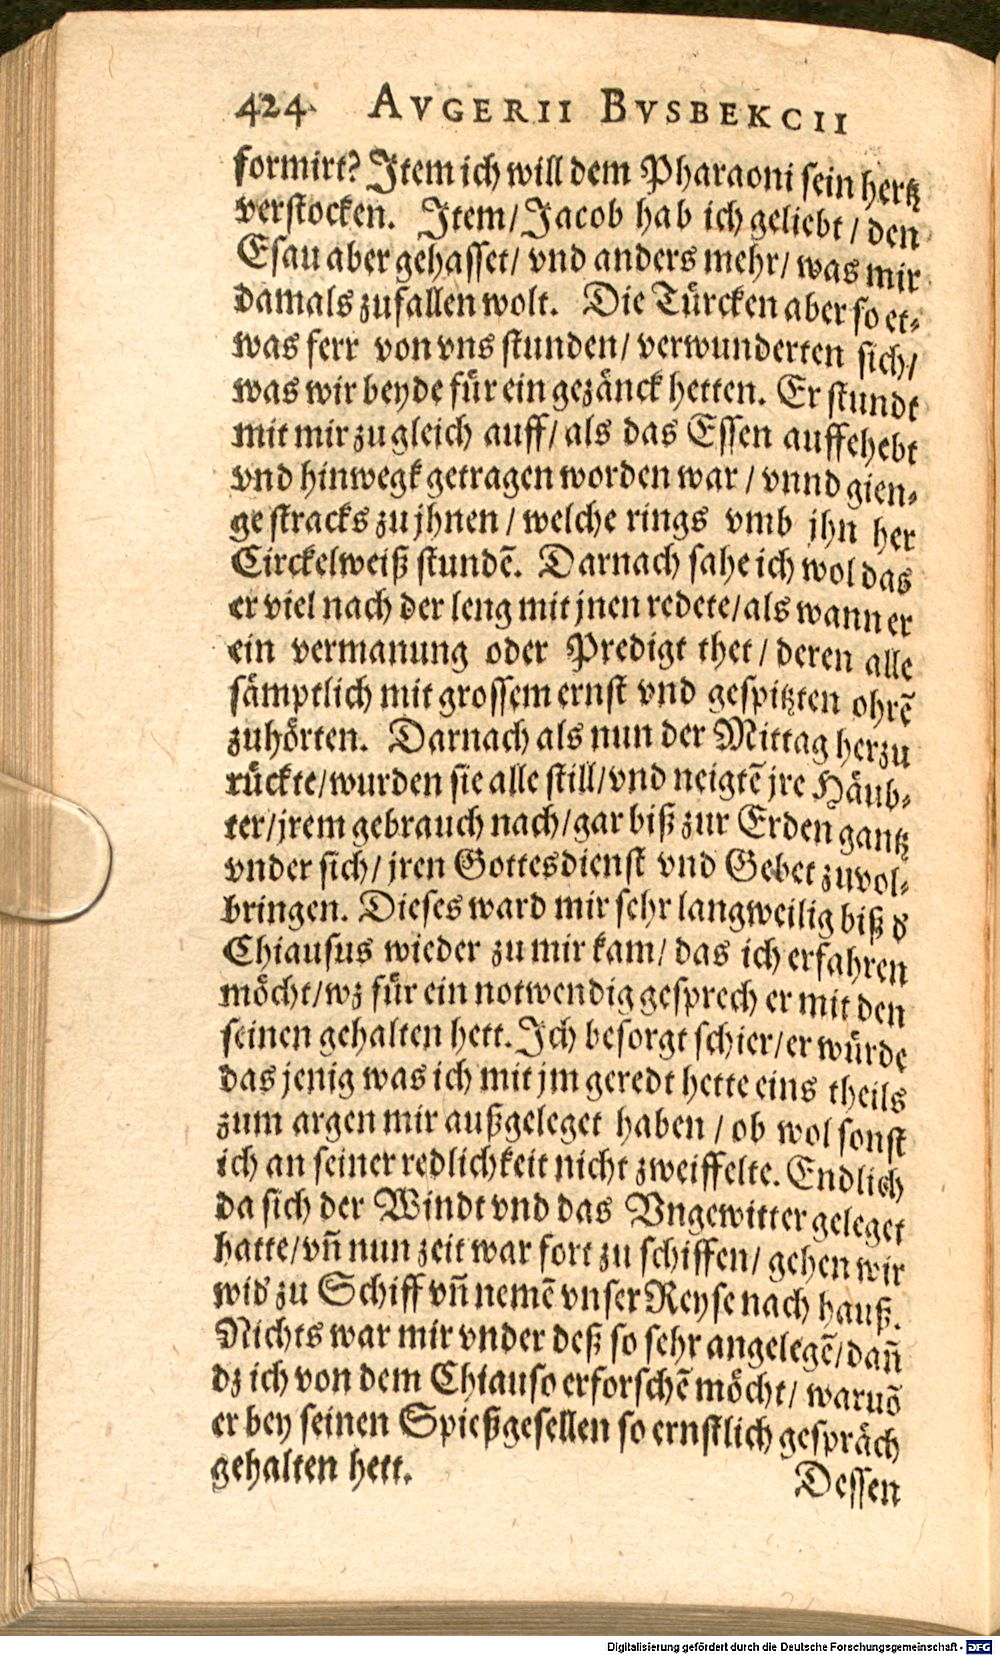 424 AVGERII BVSBEKCII
formirt? Item ich will dem Pharaoni sein hertz
verstocken. Item/ Jacob hab ich geliebt/ den
Esau aber gehasset/ vnd anders mehr/ was mir
damals zufallen wolt. Die Türcken aber so et-
was ferr von vns stunden/ verwunderten sich/
was wir beyde für ein gezänck hetten. Er stundt
mit mir zugleich auff/ als das Essen auffehebt
vnd hinwegk getragen worden war/ vnnd gien-
ge stracks zu jhnen/ welche rings vmb jhn her
Circkelweiß stundē. Darnach sahe ich wol das
er viel nach der leng mit jnen redete/ als wann er
ein vermanung oder Predigt thet/ deren alle
sämptlich mit grossem ernst vnd gespitzten ohrē
zuhörten. Darnach als nun der Mittag herzu
rückte/ wurden sie alle still/ vnd neigtē jre Häub-
ter/ jrem gebrauch nach/ gar biß zur Erden gantz
vnder sich/ jren Gottesdienst vnd Gebet zuvol-
bringen. Dieses ward mir sehr langweilig biß d̕
Chiausus wieder zu mir kam/ das ich erfahren
möcht/ wz für ein notwendig gesprech er mit den
seinen gehalten hett. Ich besorgt schier/ er würde
das jenig was ich mit jm geredt hette eins theils
zum argen mir außgeleget haben/ ob wol sonst
ich an seiner redlichkeit nicht zweiffelte. Endlich
da sich der Windt vnd das Vngewitter geleget
hatte/ vñ nun zeit war fort zu schiffen/ gehen wir
wid̕ zu Schiff vñ nemē vnser Reyse nach hauß.
Nichts war mir vnder deß so sehr angelegē/ dañ
dz ich von dem Chiauso erforschē möcht/ warūb
er bey seinen Spießgesellen so ernstlich gespräch
gehalten hett.
Dessen
Digitalisierung gefördert durch die Deutsche Forschungsgemeinschaft - DFG